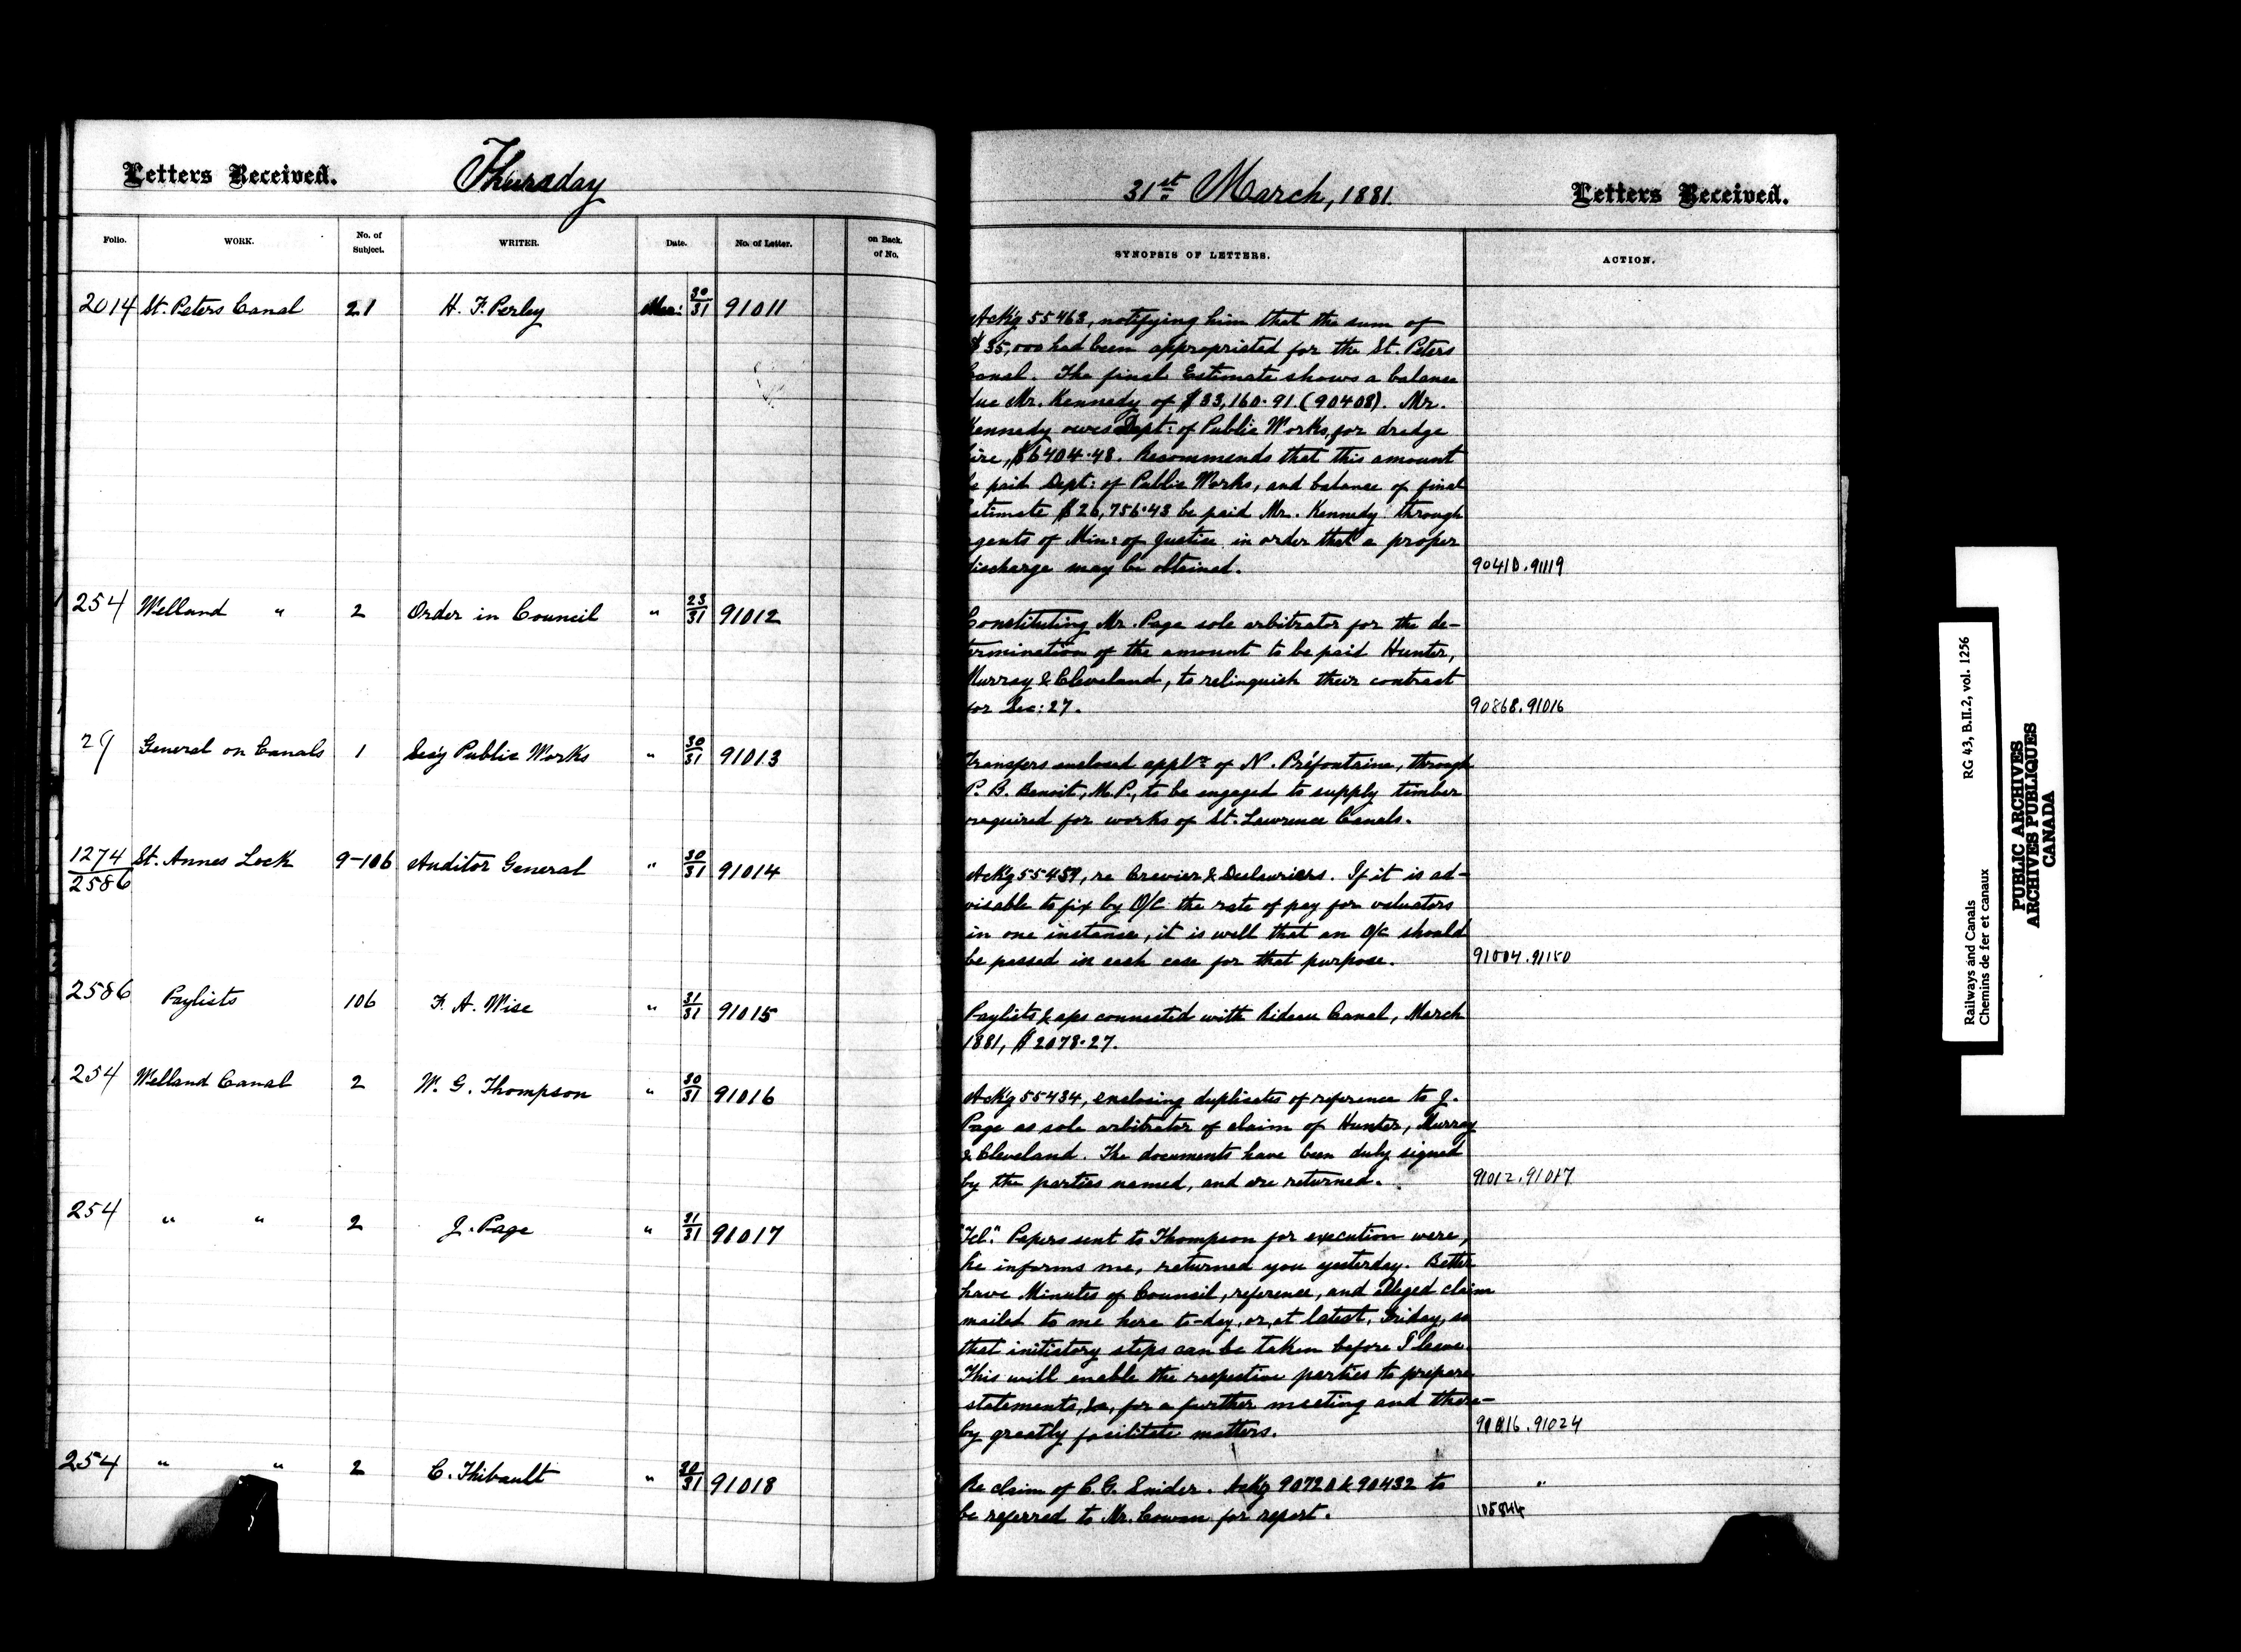 Letters Received.
Thursday
31st March, 1881.
Letters Received.
Folio. WORK. No. of Subject. WRITER. Date. No. of Letter. on Back. of No. SYNOPSIS OF LETTERS. ACTION.
2014 St. Peters Canal 21 H. F. Perley Mar: 30/31 91011
Ackg 55463, notifying him that the sum of
$35,000 had been appropriated for the St. Peters
Canal. The final Estimate shows a balance
due Mr. Kennedy of $33,160.91 (90408). Mr.
Kennedy owes Dept: of Public Works, for dredge
hire, $6404.48. Recommends that this amount
be paid Dept: of Public Works, and balance of final
Estimate $26,756.43 be paid Mr. Kennedy through
agents of Min: of Justice in order that a proper
discharge may be obtained. 90410.91119
254 Welland " 2 Order in Council " 23/31 91012
Constituting Mr. Page sole arbitrator for the de-
termination of the amount to be paid Hunter,
Murray & Cleveland, to relinquish their contract
for Sec: 27. 90868.91016
29 General on Canals 1 Secy Public Works " 30/31 91013
Transfers enclosed appln of N. Préfontaine, through
P. B. Benoit, M.P., to be engaged to supply timber
required for works of St. Lawrence Canals.
1274/2586 St. Annes Lock 9-106 Auditor General " 30/31 91014
Ackg 55459, re Crevier & Deslauriers. If it is ad-
visable to fix by O/C the rate of pay for valuators
in one instance, it is well that an O/C should
be passed in each case for that purpose. 91004.91150
2586 Paylists 106 F. A. Wise " 31/31 91015
Paylists & aps connected with Rideau Canal, March
1881, $2078.27.
254 Welland Canal 2 W. G. Thompson " 30/31 91016
Ackg 55434, enclosing duplicates of reference to J.
Page as sole arbitrator of claim of Hunter, Murray
& Cleveland. The documents have been duly signed
by the parties named, and are returned. 91012.91017
254 " " 2 J. Page " 31/31 91017
"Tel". Papers sent to Thompson for execution were,
he informs me, returned you yesterday. Better
have Minutes of Council, reference, and alleged claim
mailed to me here to-day, or, at latest, Friday, so
that initiatory steps can be taken before I leave.
This will enable the respective parties to prepare
statements, &c, for a further meeting and there-
by greatly facilitate matters. 91016.91024
254 " " 2 C. Thibault " 30/31 91018
Re claim of C. G. Snider. Ackg 90720 & 90432 to "
be referred to Mr. Cowan for report. 105844
Railways and Canals RG 43, B.II.2, vol. 1256
Chemins de fer et canaux
PUBLIC ARCHIVES
ARCHIVES PUBLIQUES
CANADA